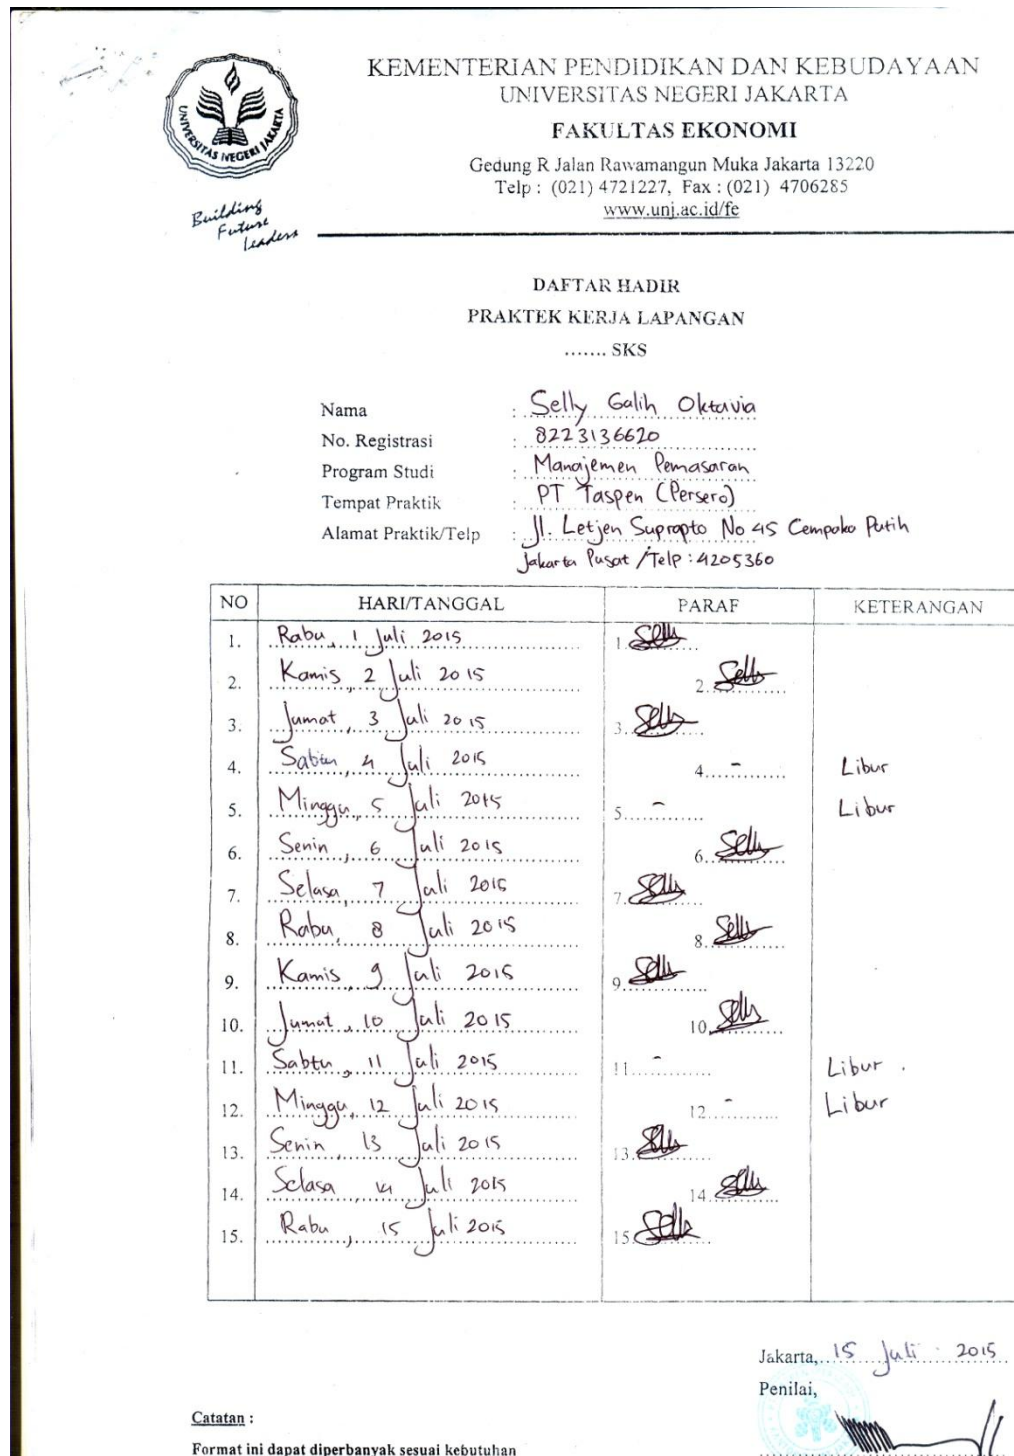 KEMENTERIAN PENDIDIKAN DAN KEBUDAYAAN
UNIVERSITAS NEGERI JAKARTA
FAKULTAS EKONOMI
Gedung R Jalan Rawamangun Muka Jakarta 13220
Telp : (021) 4721227, Fax : (021) 4706285
www.unj.ac.id/fe
UNIVERSITAS NEGERI JAKARTA
Building
Future
Leaders
DAFTAR HADIR
PRAKTEK KERJA LAPANGAN
....... SKS
Nama : Selly Galih Oktavia
No. Registrasi : 8223136620
Program Studi : Manajemen Pemasaran
Tempat Praktik : PT Taspen (Persero)
Alamat Praktik/Telp : Jl. Letjen Suprapto No 45 Cempaka Putih
Jakarta Pusat / Telp : 4205360
NO HARI/TANGGAL PARAF KETERANGAN
1. Rabu, 1 Juli 2015 1. Selly
2. Kamis, 2 Juli 2015 2. Selly
3. Jumat, 3 Juli 2015 3. Selly
4. Sabtu, 4 Juli 2015 4. - Libur
5. Minggu, 5 Juli 2015 5. - Libur
6. Senin, 6 Juli 2015 6. Selly
7. Selasa, 7 Juli 2015 7. Selly
8. Rabu, 8 Juli 2015 8. Selly
9. Kamis, 9 Juli 2015 9. Selly
10. Jumat, 10 Juli 2015 10. Selly
11. Sabtu, 11 Juli 2015 11. - Libur
12. Minggu, 12 Juli 2015 12. - Libur
13. Senin, 13 Juli 2015 13. Selly
14. Selasa, 14 Juli 2015 14. Selly
15. Rabu, 15 Juli 2015 15. Selly
Jakarta, 15 Juli 2015
Penilai,
Catatan :
Format ini dapat diperbanyak sesuai kebutuhan